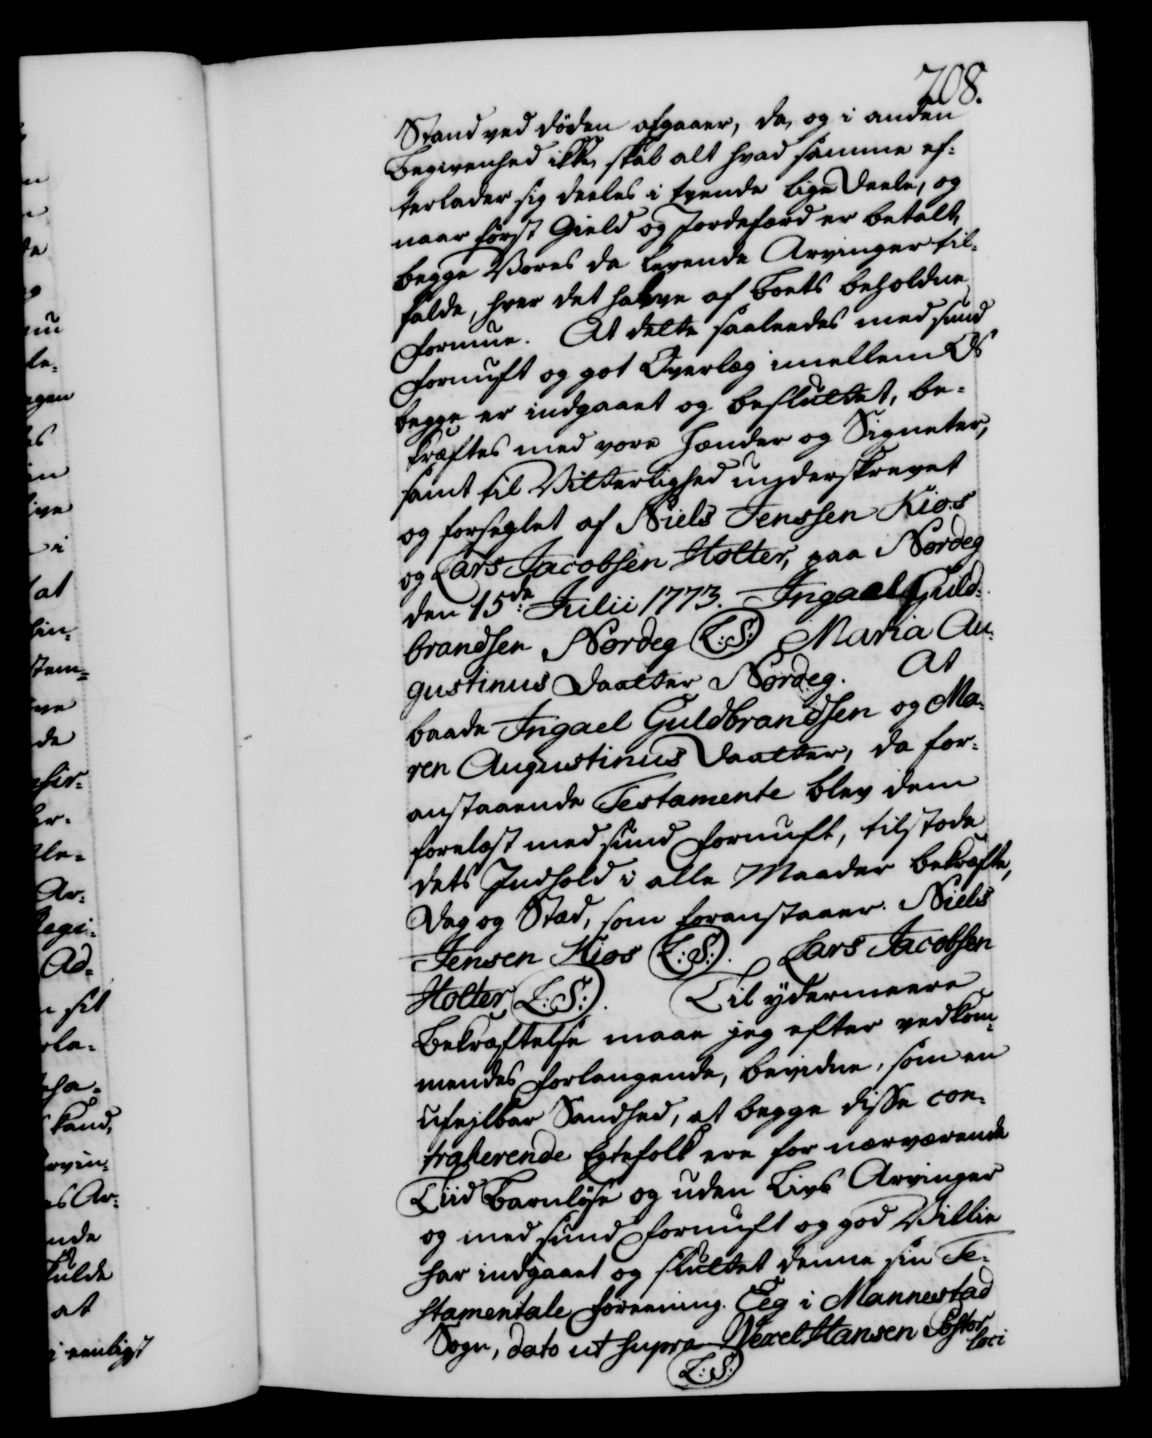 208.
Stand ved døden afgaaer, da, og i anden
Begivenhed ikke, skal alt hvad samme ef-
terlader sig deeles i tvende lige Deele, og
naar først Gield og Jordefærd er betalt,
begge Vores da levende Arvinger til-
falde, hver det halve af Boets beholdne
Formue. At dette saaleedes med sund
Fornuft og got Overlæg imellem Os
begge er indgaaet og besluttet, be-
kræftes med vore Hænder og Signeter,
samt til Vitterlighed underskrevet
og forseglet af Niels Jenssen Kios
og Lars Jacobsen Holter, paa Nordeg
den 15de Julii 1773. Ingael Guld-
brandsen Nordeg (L:S:) Maria Au-
gustinus Daatter Nordeg. At
baade Ingael Guldbrandsen og Ma-
ren Augustinus Daatter, da for-
anstaaende Testamente blev dem
forelæst med sund Fornuft, tilstode
dets Indhold i alle Maader bekræfte,
Dag og Stæd, som foranstaaer. Niels
Jensen Kios (L:S:). Lars Jacobsen
Holter (L:S:). Til ydermeere
Bekræftelse maae jeg efter vedkom-
mendes Forlangende, bevidne, som en
ufejlbar Sandhed, at begge disse con-
traherende Egtefolk ere for nærværende
Tiid Barnløse og uden Livs Arvinger
og med sund Fornuft og god Villie
har indgaaet og sluttet denne sin Te-
stamentale Foreening. Eeg i Mannestad
Sogn, dato ut supra Wexel Hansen Pastor
loci
(L:S:)